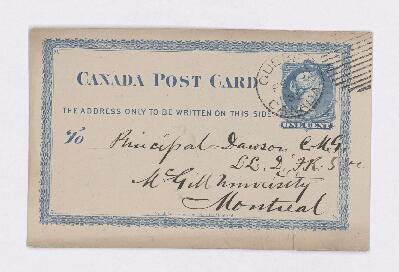 CANADA POST CARD
ONE CENT
THE ADDRESS ONLY TO BE WRITTEN ON THIS SIDE
To Principal Dawson C.M.G.
LL.D. F.R.S. &c
McGill University
Montreal